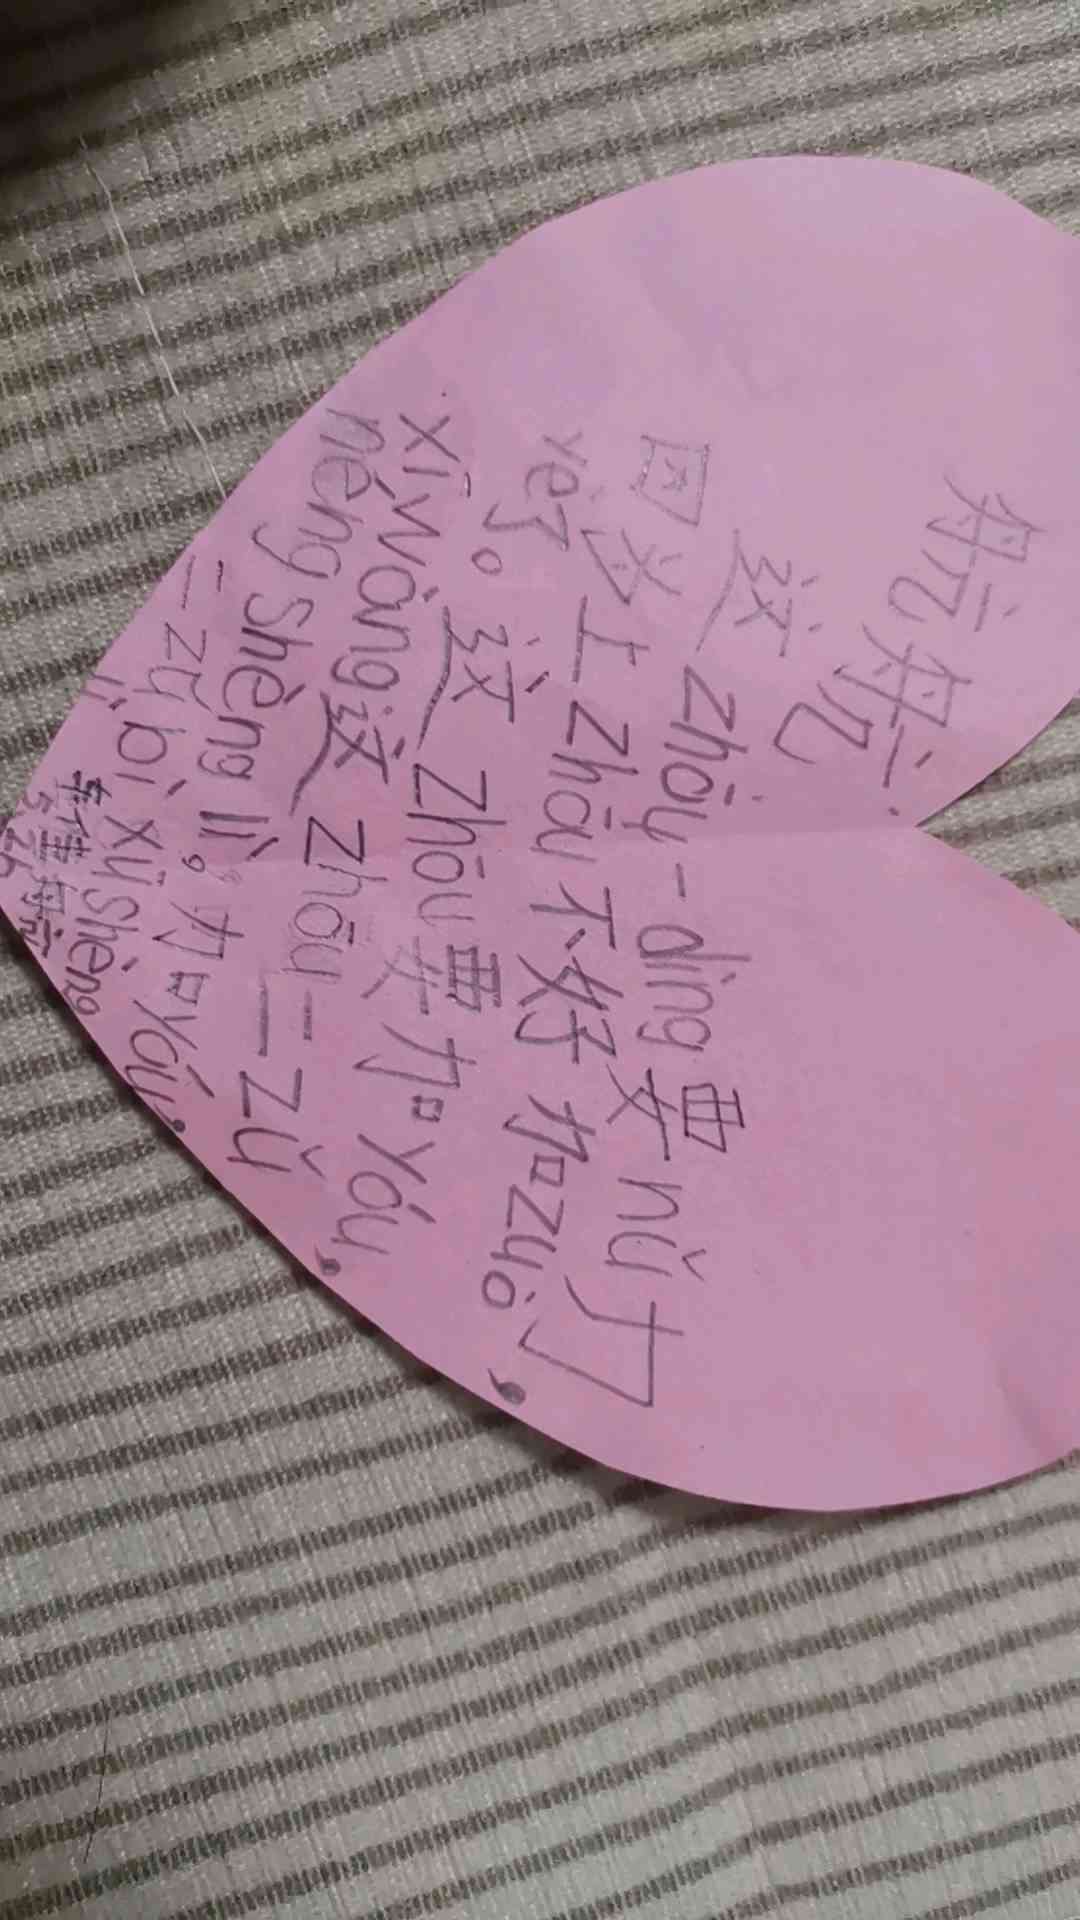 航航:
这zhōu一dìng要nǔ力
因为上zhōu不好 加zuò
yè了。这zhōu要加yóu,
xī wàng这zhōu一一zǔ
néng shèng lì。加yóu,
一zǔ bì xū shèng
lì
航
5 26